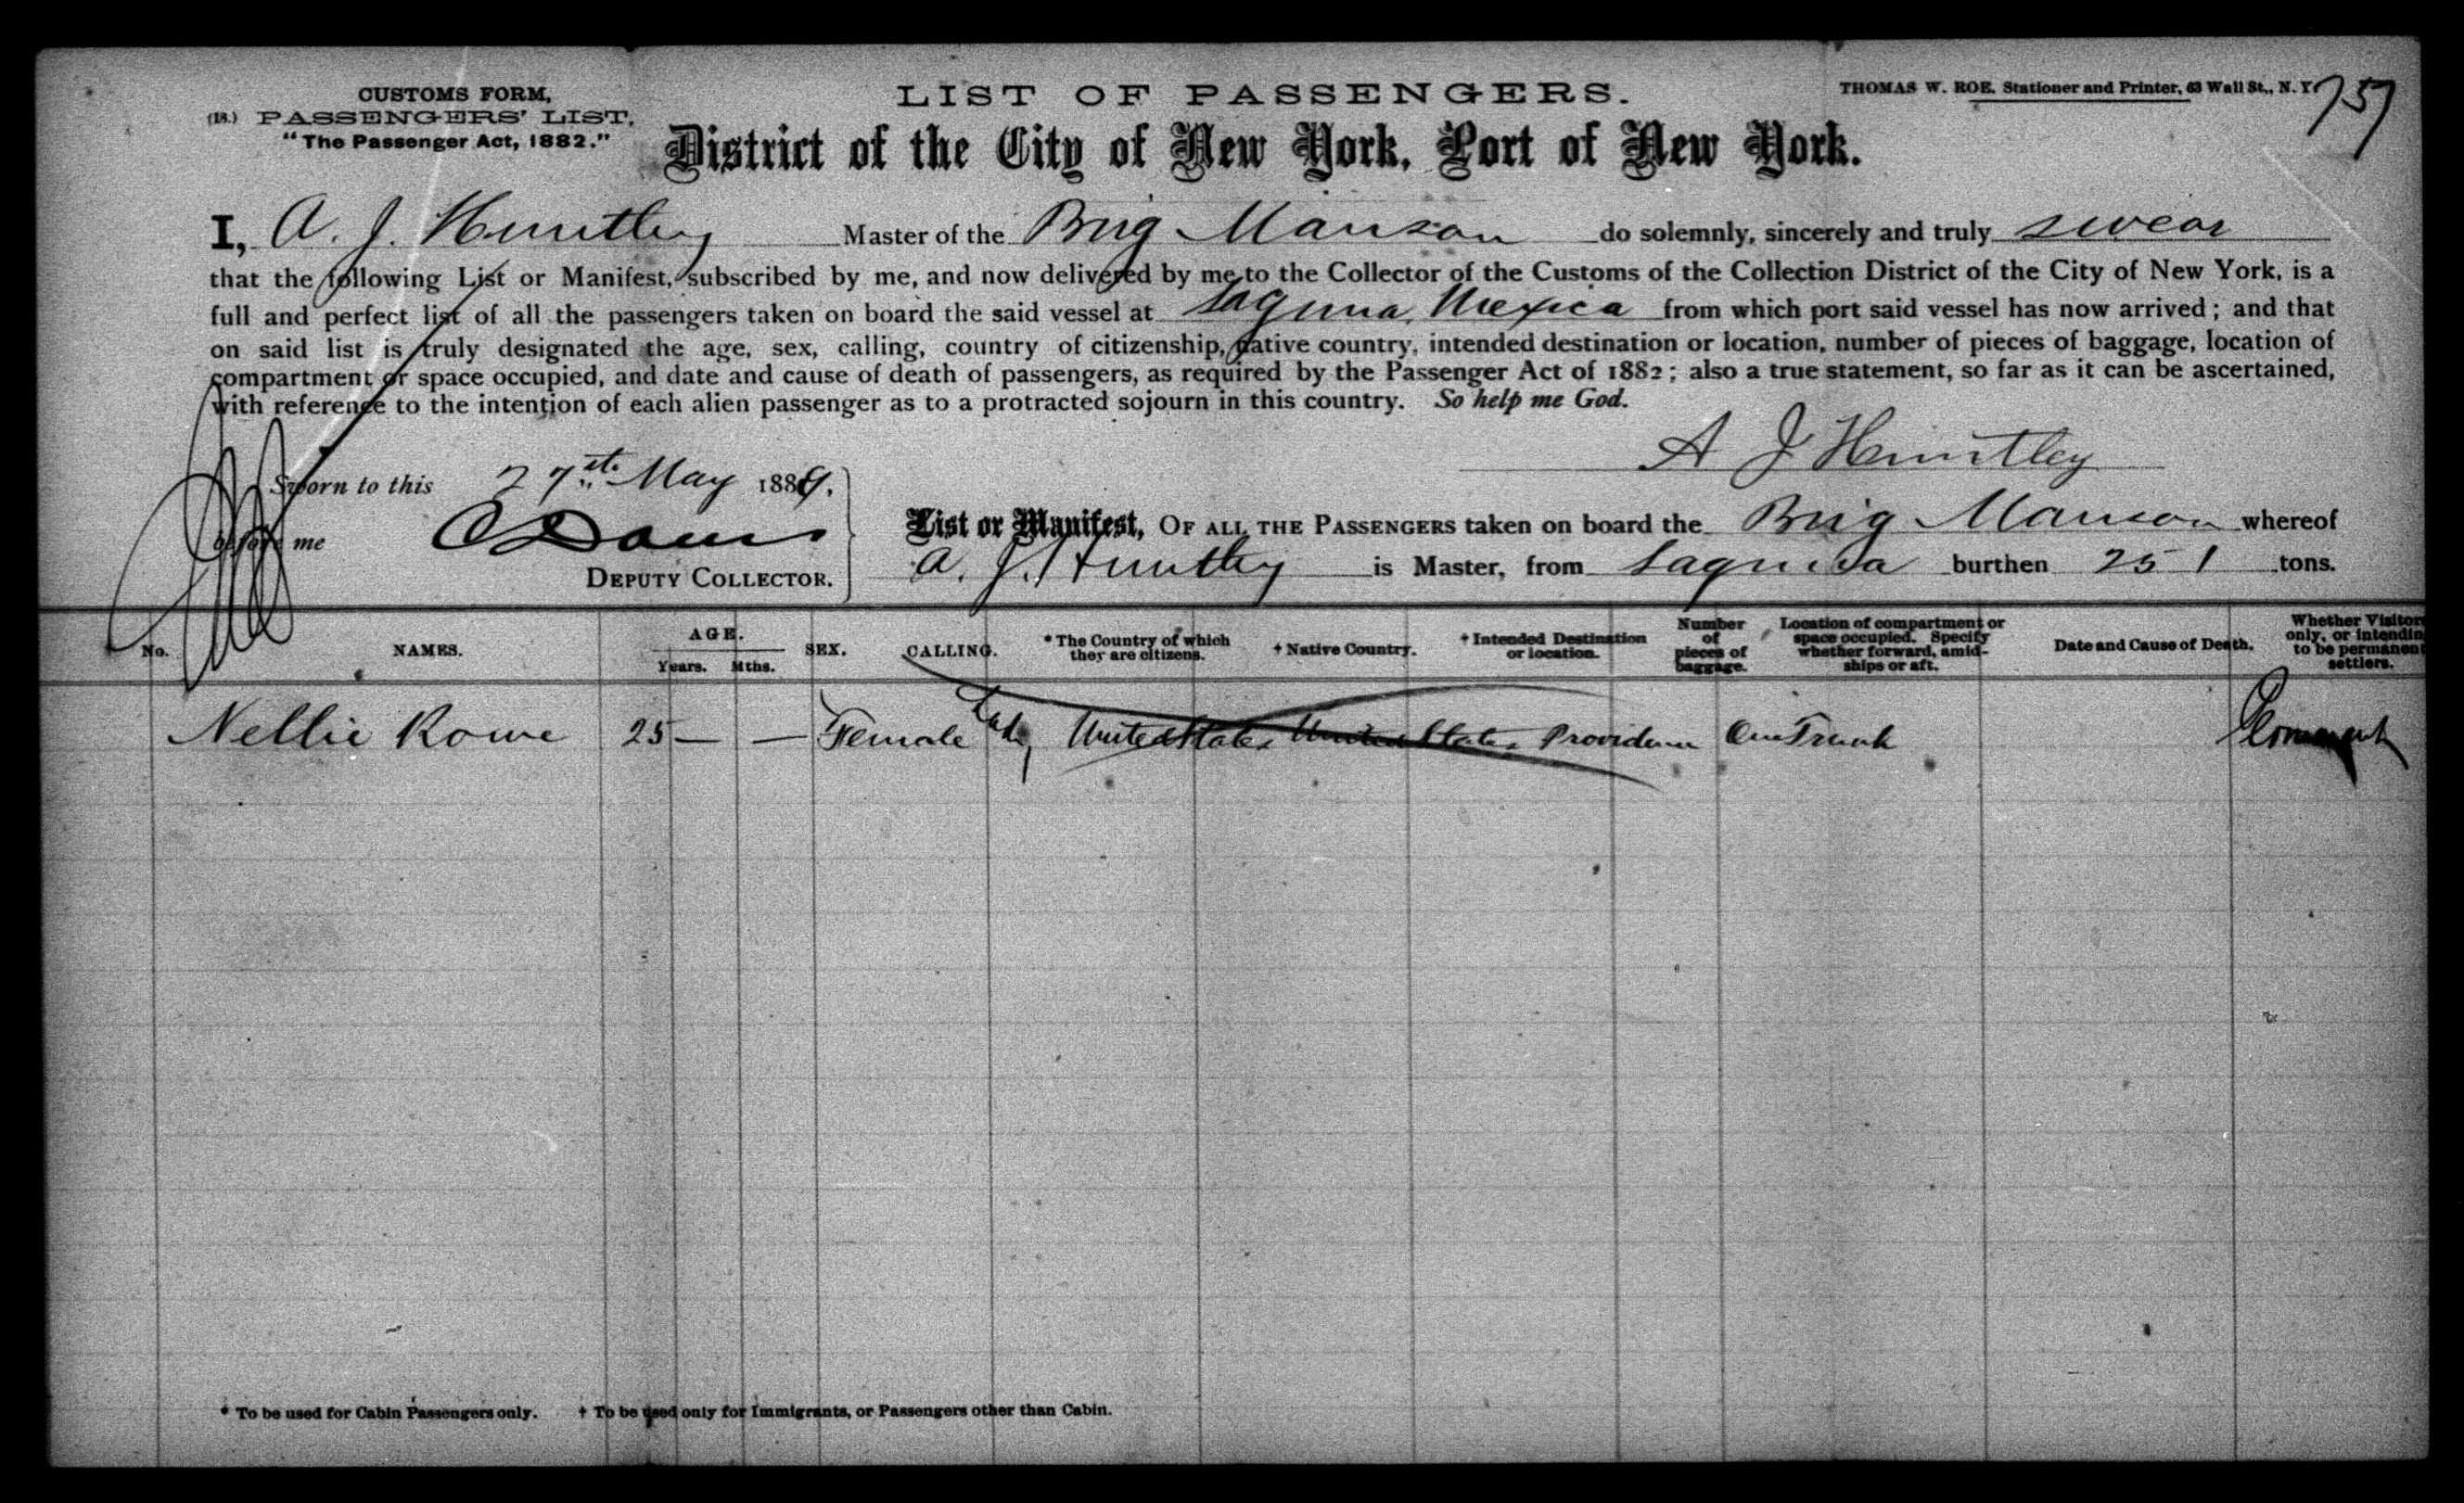 CUSTOMS FORM,
(18.) PASSENGERS' LIST,
"The Passenger Act, 1882."
LIST OF PASSENGERS.
THOMAS W. ROE, Stationer and Printer, 63 Wall St., N. Y.
757
District of the City of New York, Port of New York.
I, A. J. Huntley Master of the Brig Manson do solemnly, sincerely and truly swear
that the following List or Manifest, subscribed by me, and now delivered by me to the Collector of the Customs of the Collection District of the City of New York, is a
full and perfect list of all the passengers taken on board the said vessel at Laguna, Mexico from which port said vessel has now arrived; and that
on said list is truly designated the age, sex, calling, country of citizenship, native country, intended destination or location, number of pieces of baggage, location of
compartment or space occupied, and date and cause of death of passengers, as required by the Passenger Act of 1882; also a true statement, so far as it can be ascertained,
with reference to the intention of each alien passenger as to a protracted sojourn in this country. So help me God.
A J Huntley
Sworn to this 27th May 1889.
before me
DEPUTY COLLECTOR.
List or Manifest, OF ALL THE PASSENGERS taken on board the Brig Manson whereof
A. J. Huntley is Master, from Laguna burthen 251 tons.
No. NAMES. AGE. Years. Mths. SEX. CALLING. * The Country of which they are citizens. † Native Country. † Intended Destination or location. Number of pieces of baggage. Location of compartment or space occupied. Specify whether forward, amidships or aft. Date and Cause of Death. Whether Visitors only, or intending to be permanent settlers.
Nellie Rowe 25 — — Female Lady United States United States Providence One Trunk Permanent
* To be used for Cabin Passengers only. † To be used only for Immigrants, or Passengers other than Cabin.